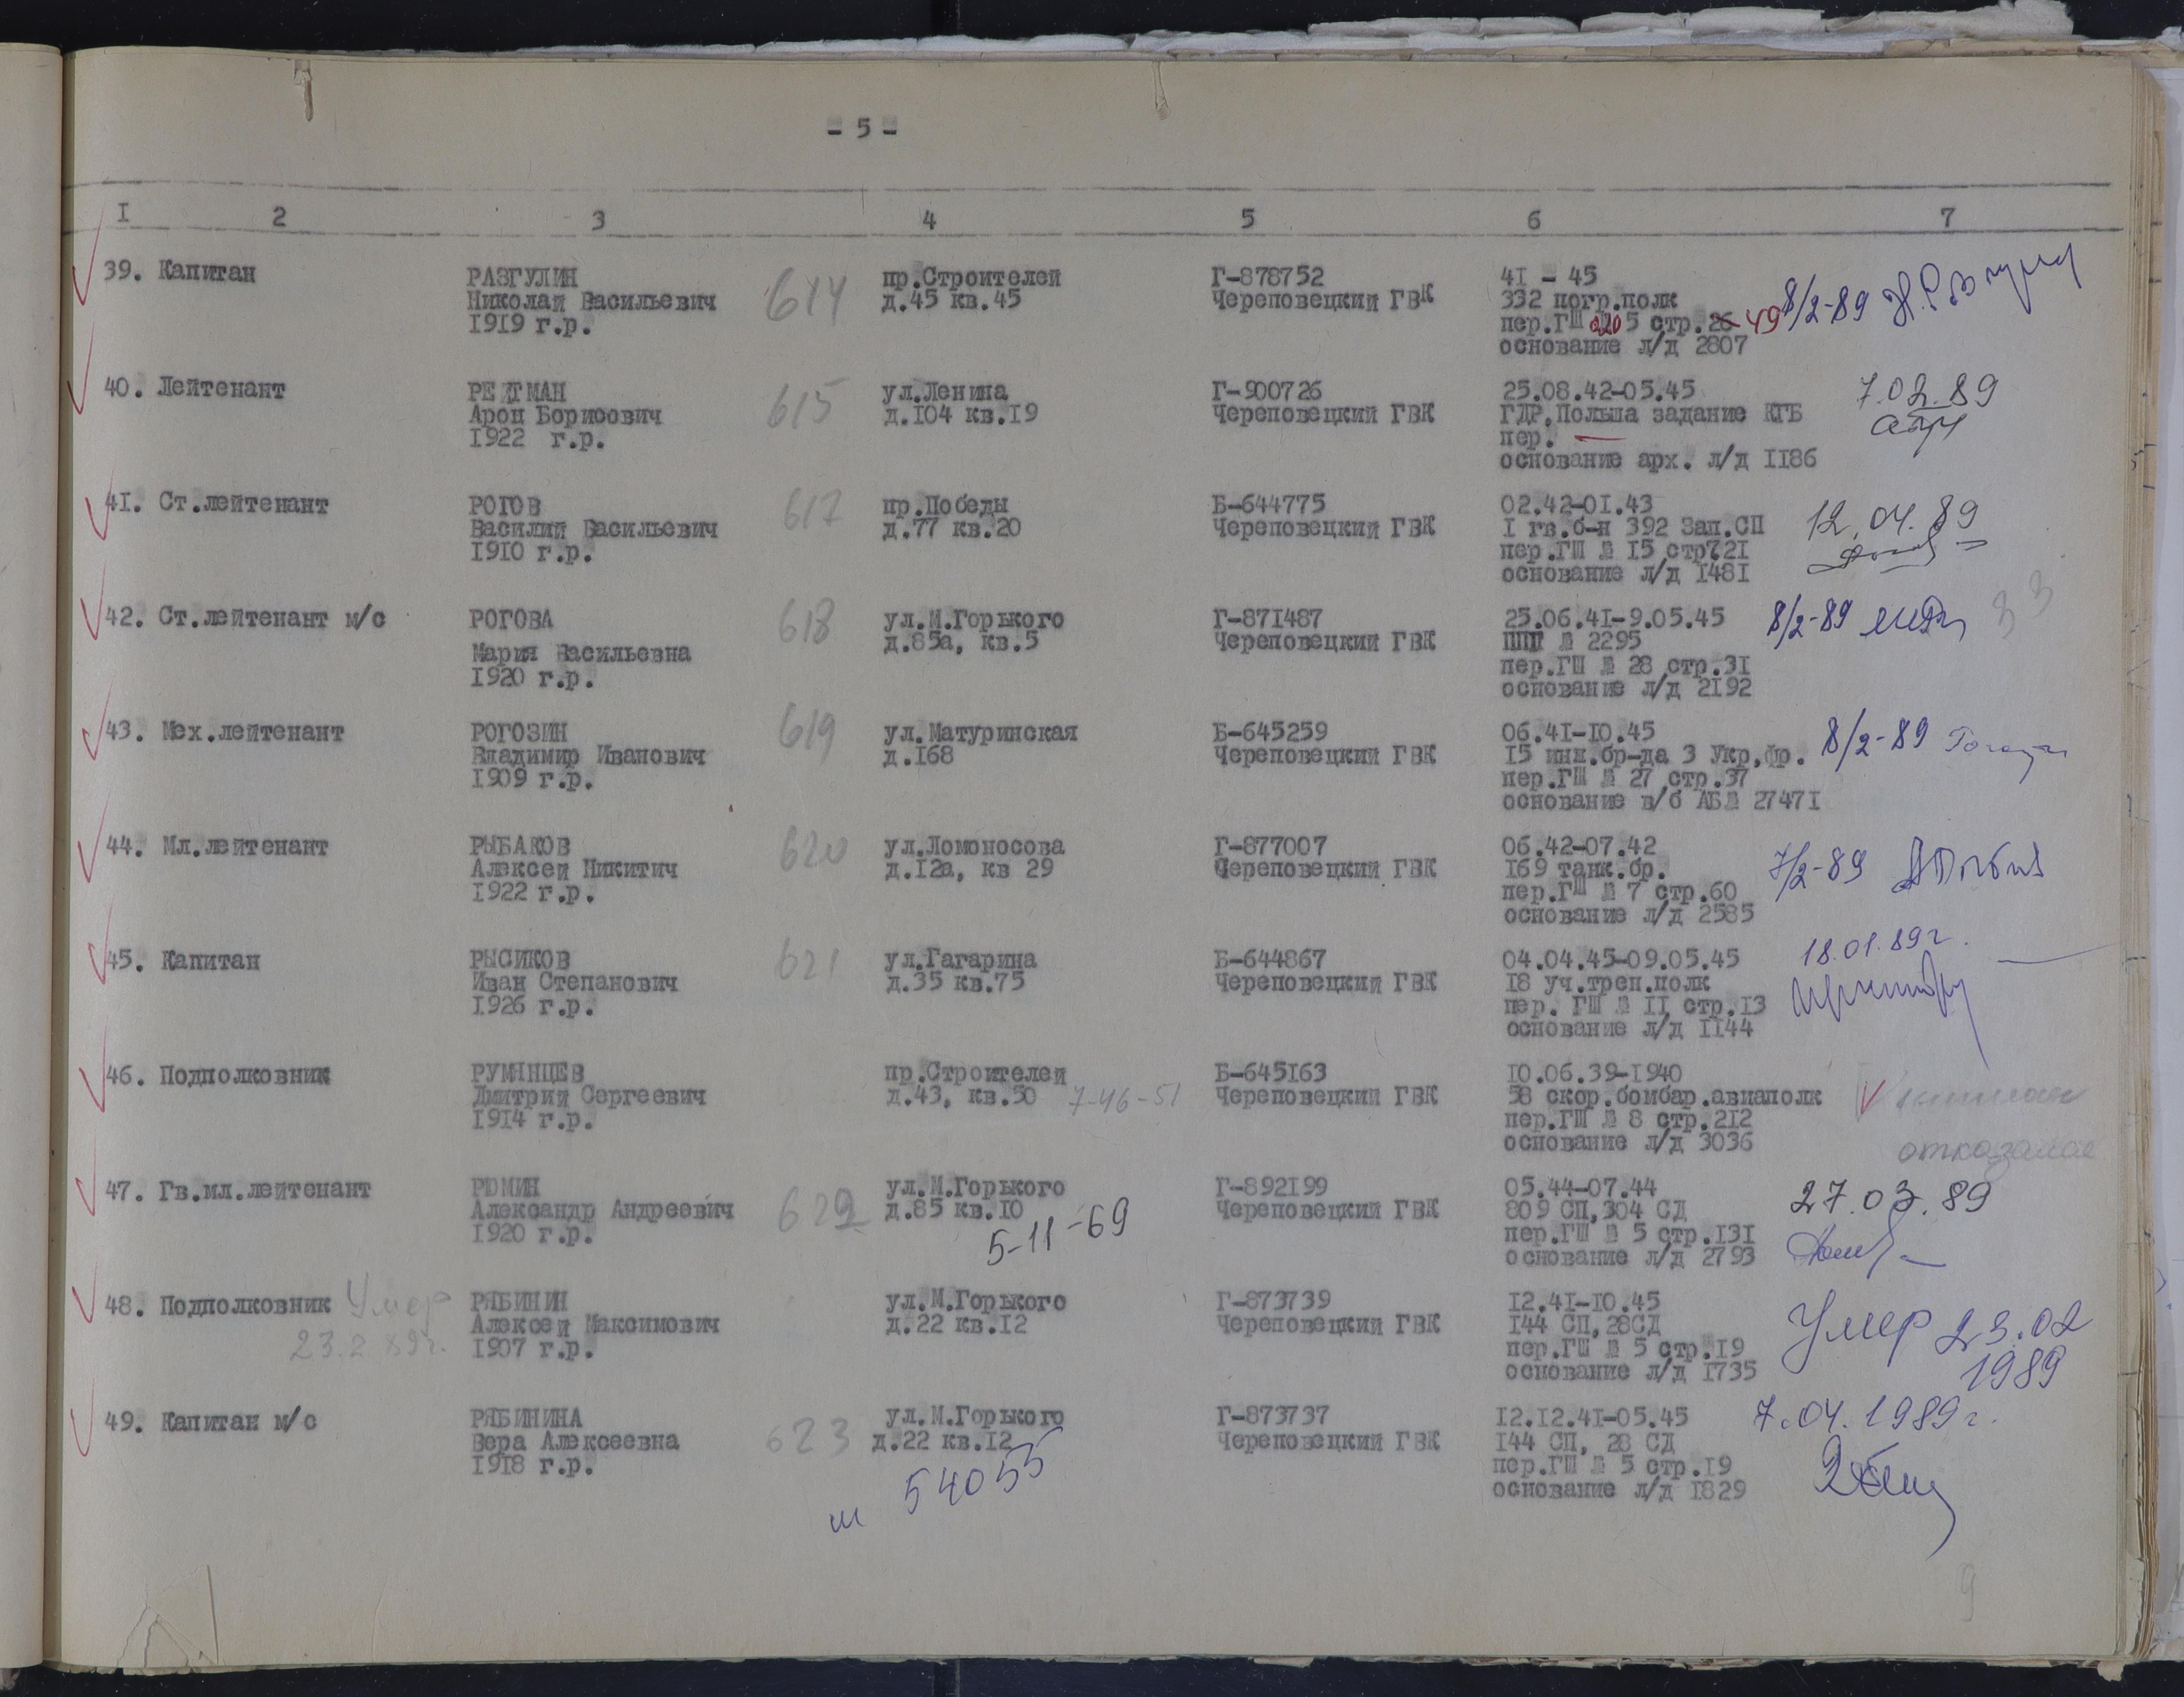 - 5 -
I 2 3 4 5 6 7
39. Капитан
РАЗГУЛИН
Николай Васильевич
1919 г.р.
614
пр.Строителей
д.45 кв.45
Г-878752
Череповецкий ГВК
4I - 45
332 погр.полк
пер.ГШ 220 5 стр.26 49
основание л/д 2807
8/2-89
40. Лейтенант
РЕЙТМАН
Арон Борисович
I922 г.р.
615
ул.Ленина
д.I04 кв.I9
Г-900726
Череповецкий ГВК
25.08.42-05.45
ГДР,Польша задание КГБ
пер. —
основание арх. л/д II86
7.02.89
4I. Ст.лейтенант
РОГОВ
Василий Васильевич
I9I0 г.р.
617
пр.Победы
д.77 кв.20
Б-644775
Череповецкий ГВК
02.42-0I.43
I гв.б-н 392 Зап.СП
пер.ГШ № I5 стр72I
основание л/д I48I
12.04.89
42. Ст.лейтенант м/с
РОГОВА
Мария Васильевна
I920 г.р.
618
ул.М.Горького
д.85а, кв.5
Г-87I487
Череповецкий ГВК
25.06.4I-9.05.45
ППГ № 2295
пер.ГШ № 28 стр.3I
основание л/д 2I92
8/2-89
33
43. Мех.лейтенант
РОГОЗИН
Владимир Иванович
I909 г.р.
619
ул.Матуринская
д.I68
Б-645259
Череповецкий ГВК
06.4I-I0.45
I5 инж.бр-да 3 Укр,фр.
пер.ГШ № 27 стр.37
основание в/б АБ№ 2747I
8/2-89
44. Мл.лейтенант
РЫБАКОВ
Алексей Никитич
I922 г.р.
620
ул.Ломоносова
д.I2а, кв 29
Г-877007
Череповецкий ГВК
06.42-07.42
I69 танк.бр.
пер.ГШ № 7 стр.60
основание л/д 2585
7/2-89
45. Капитан
РЫСИКОВ
Иван Степанович
I926 г.р.
621
ул.Гагарина
д.35 кв.75
Б-644867
Череповецкий ГВК
04.04.45-09.05.45
I8 уч.трен.полк
пер. ГШ № II стр.I3
основание л/д II44
18.01.89г.
46. Подполковник
РУМЯНЦЕВ
Дмитрий Сергеевич
I9I4 г.р.
пр.Строителей
д.43, кв.50
7-46-51
Б-645I63
Череповецкий ГВК
I0.06.39-I940
58 скор.бомбар.авиаполк
пер.ГШ № 8 стр.2I2
основание л/д 3036
отказался
47. Гв.мл.лейтенант
РЮМИН
Александр Андреевич
I920 г.р.
622
ул.М.Горького
д.85 кв.I0
5-11-69
Г-892I99
Череповецкий ГВК
05.44-07.44
809 СП,304 СД
пер.ГШ № 5 стр.I3I
основание л/д 2793
27.03.89
48. Подполковник
Умер
23.2.89г.
РЯБИНИН
Алексей Максимович
I907 г.р.
ул.М.Горького
д.22 кв.I2
Г-873739
Череповецкий ГВК
I2.4I-I0.45
I44 СП,28СД
пер.ГШ № 5 стр.I9
основание л/д I735
Умер 23.02
1989
49. Капитан м/с
РЯБИНИНА
Вера Алексеевна
I9I8 г.р.
623
ул.М.Горького
д.22 кв.I2
т 54055
Г-873737
Череповецкий ГВК
I2.I2.4I-05.45
I44 СП, 28 СД
пер.ГШ № 5 стр.I9
основание л/д I829
7.04.1989г.
9